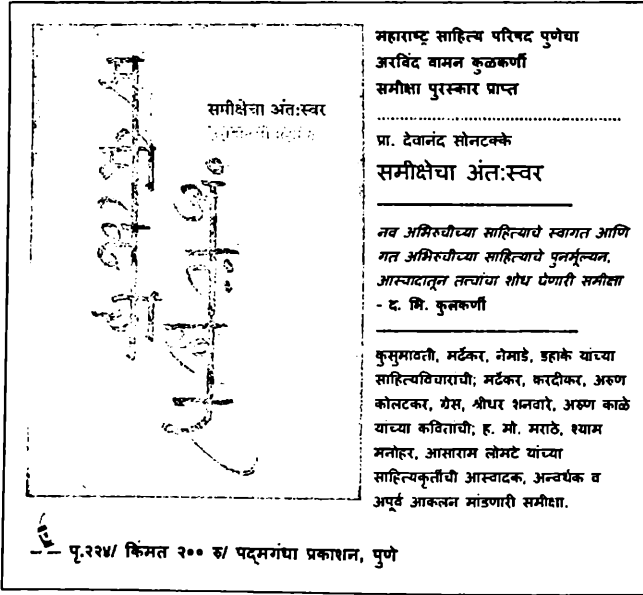 समीक्षेचा अंत:स्वर
महाराष्ट्र साहित्य परिषद पुणेचा
अरविंद वामन कुळकर्णी
समीक्षा पुरस्कार प्राप्त
प्रा. देवानंद सोनटक्के
समीक्षेचा अंत:स्वर
नव अभिरुचीच्या साहित्याचे स्वागत आणि
गत अभिरुचीच्या साहित्याचे पुनर्मूल्यन.
आस्वादातून तत्वांचा शोध घेणारी समीक्षा
- द. भि. कुलकर्णी
कुसुमावती, मर्ढेकर, नेमाडे, डहाके यांच्या
साहित्यविचारांची; मर्ढेकर, करंदीकर, अरुण
कोलटकर, ग्रेस, श्रीधर शनवारे, अरुण काळे
यांच्या कवितांची; ह. मो. मराठे, श्याम
मनोहर, आसाराम लोमटे यांच्या
साहित्यकृतींची आस्वादक, अन्वर्थक व
अपूर्व आकलन मांडणारी समीक्षा.
पृ.२२४/ किंमत २०० रु/ पद्मगंधा प्रकाशन, पुणे